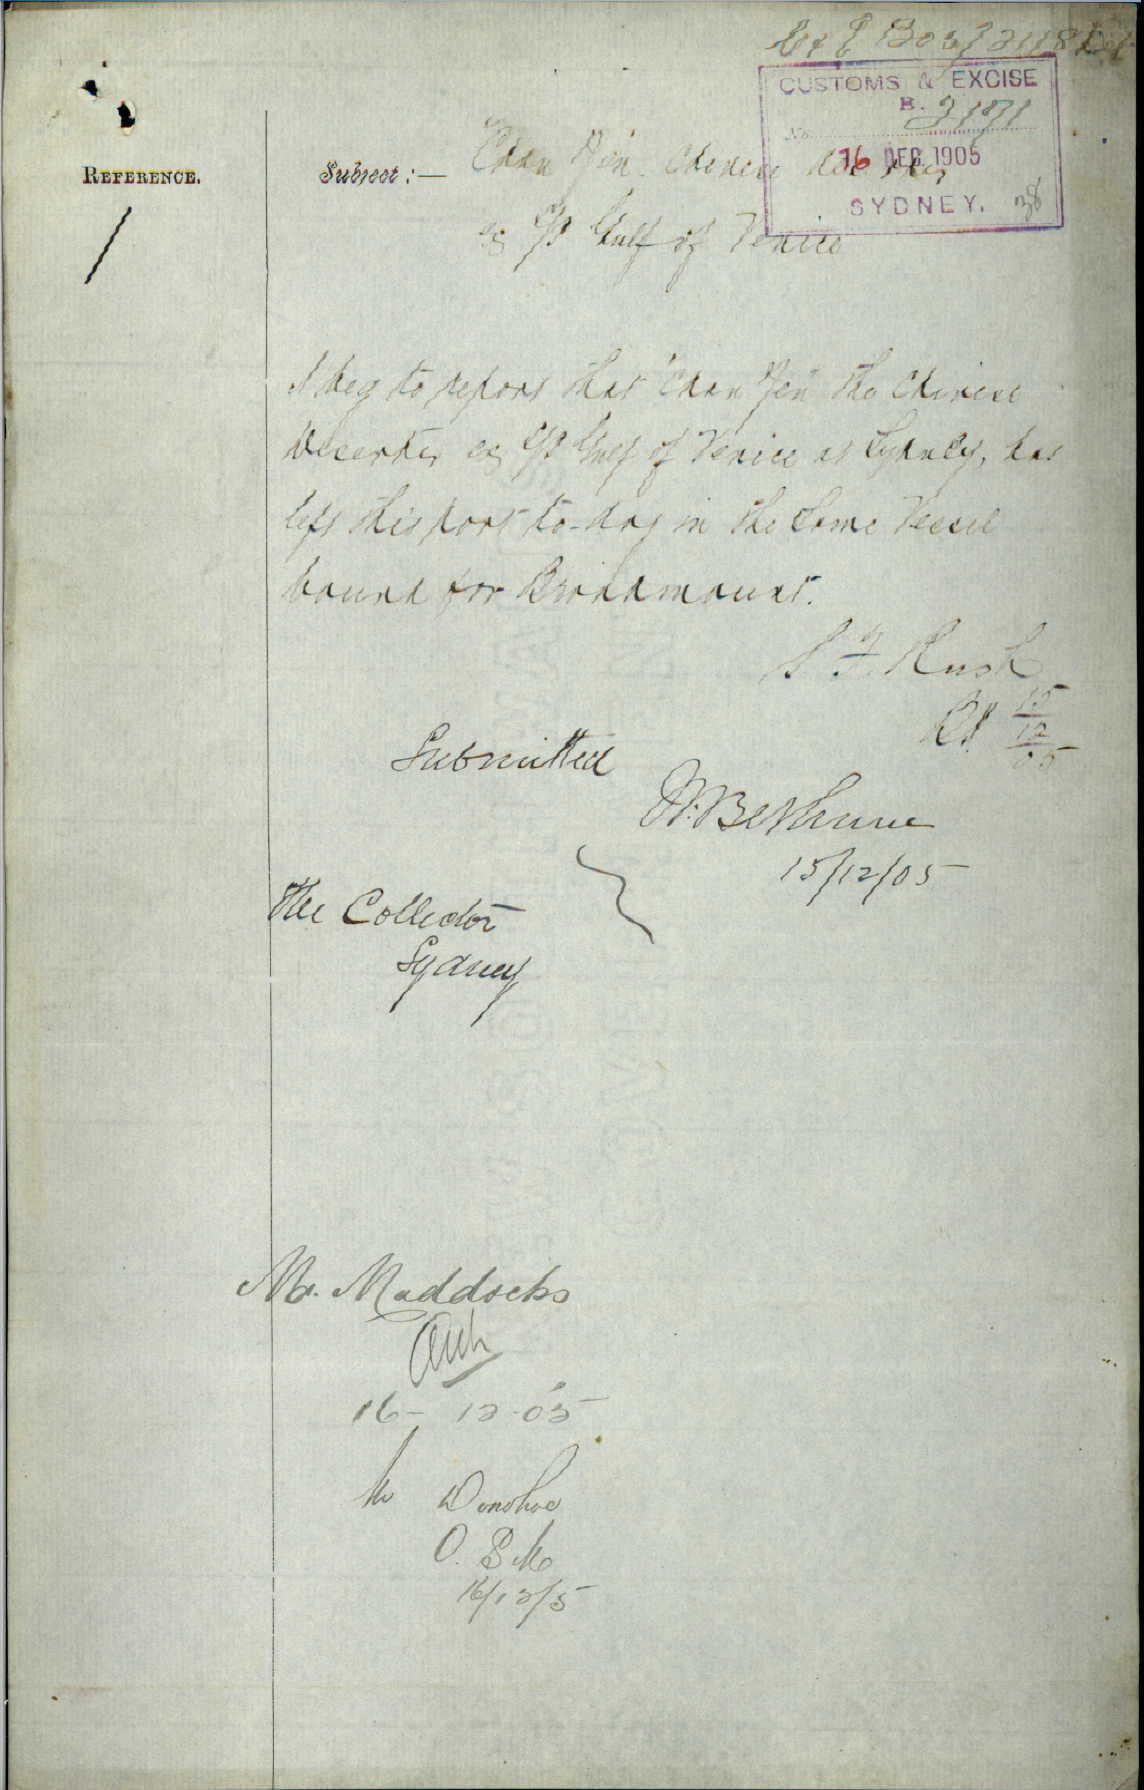 CUSTOMS & EXCISE
B.
No. 3171
16 DEC 1905
SYDNEY.
38
REFERENCE.
Subject:— Chan Yen. Chinese deserter
ex SS Gulf of Venice
I beg to report that "Chan Yen" the Chinese
deserter ex SS Gulf of Venice at Sydney, has
left this port to-day in the same vessel
bound for Broadmount.
S F Rush
15
12
05
Submitted
W. Bethune
15/12/05
The Collector
Sydney
Mr. Maddocks
16-12-05
Mr Donohoe
16/12/5